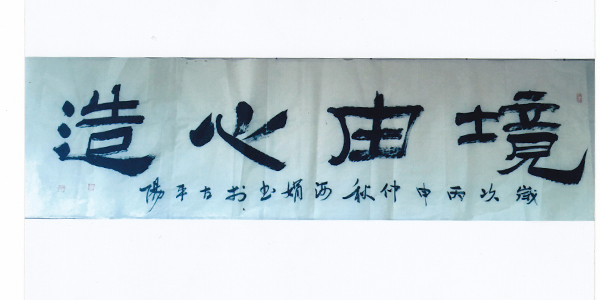 境由心造
歲次丙申仲秋海娟書於古平陽